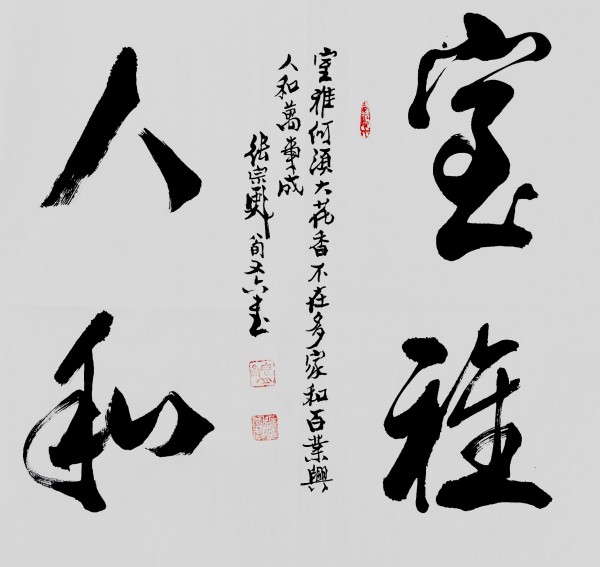 室雅
人和
室雅何須大花香不在多家和百業興
人和萬事成
張宗彪